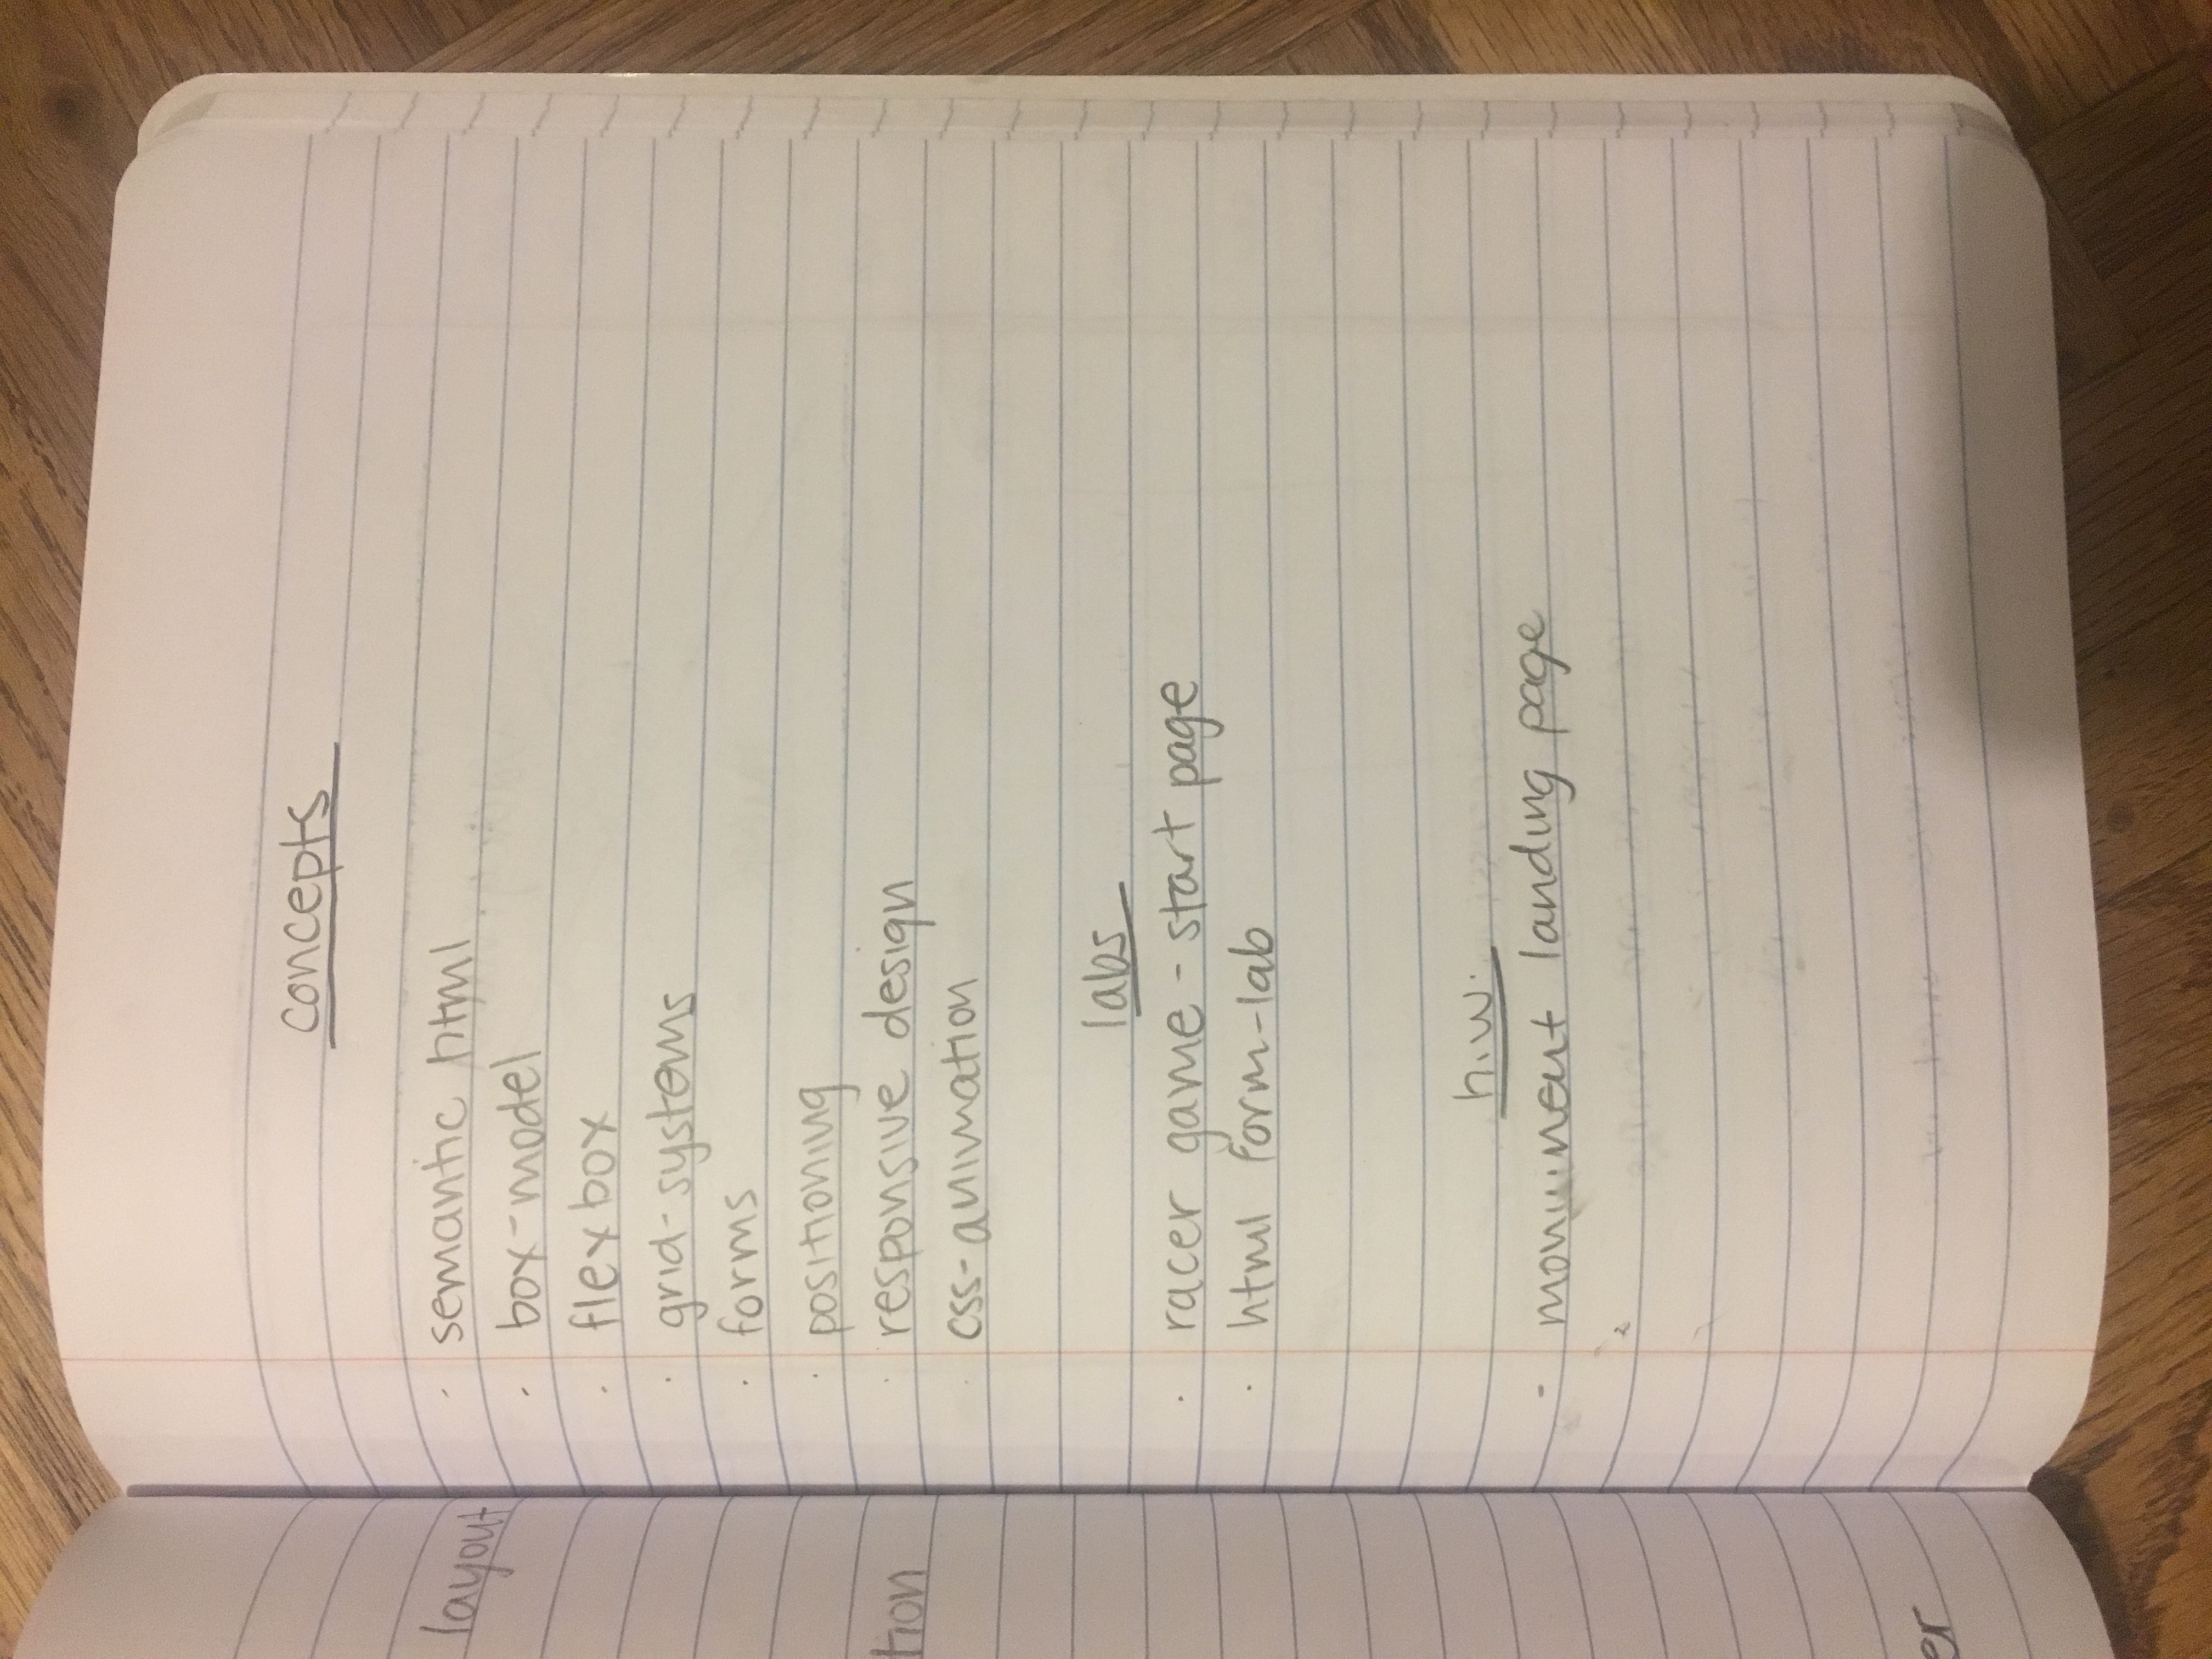 layout
tion
er
concepts
· semantic html
· box-model
· flexbox
· grid-systems
· forms
· positioning
· responsive design
· css-animation
labs
· racer game - start page
· html form-lab
h.w.
- monument landing page